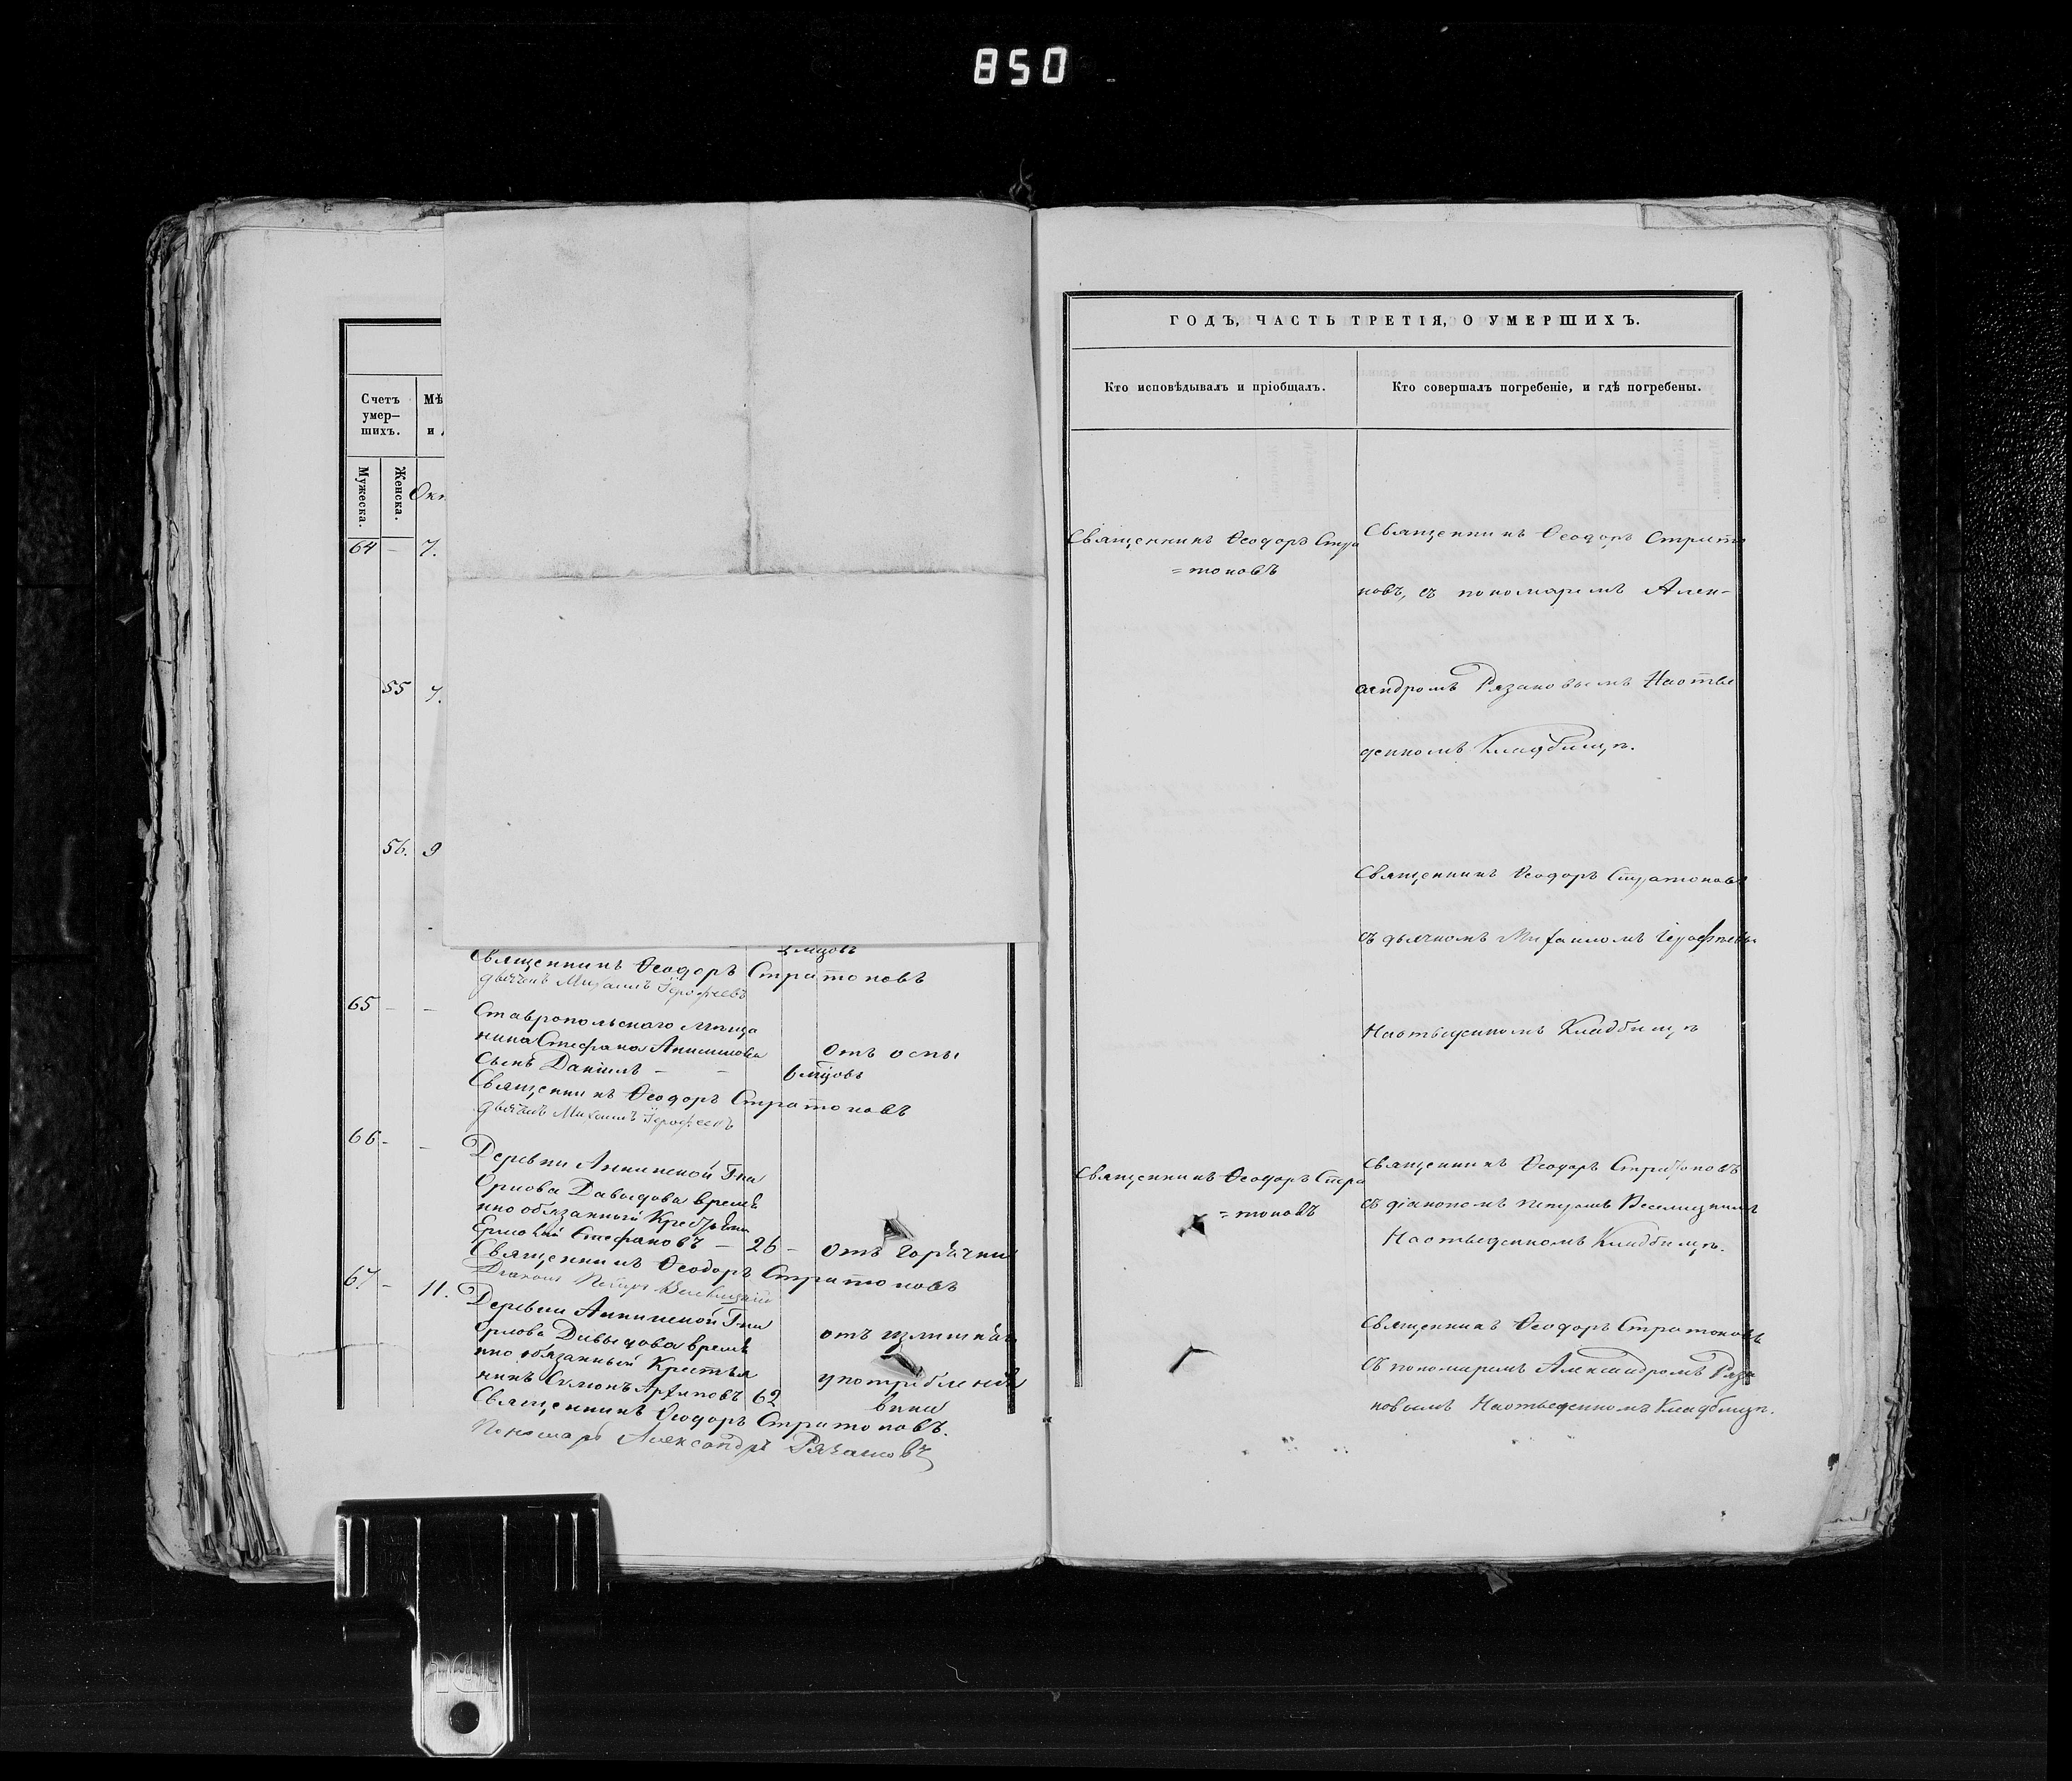 850
Счетъ
умер–
шихъ.
Мѣ
и
Мужеска.
Женска.
Окт
64 – 7.
55 7.
56. 9
мцовъ
Священникъ Ѳеодоръ Стратоновъ
дьячекъ Михаилъ Іерофеевъ
65 – –
Ставропольскаго мѣща
нина Стефана Анисимова
отъ оспы
сынъ Даніилъ – – 6 мцовъ
Священникъ Ѳеодоръ Стратоновъ
дьячекъ Михаилъ Іерофеевъ
66 – –
Деревни Аннинской Гна
Орлова Давыдова времѣ
нно обязанный Крестьяни
Стефановъ – 26 – отъ горячки
Священникъ Ѳеодоръ Стратоновъ
Диаконъ Петръ
67 – 11.
Деревни Аннинской Гна
Орлова Давыдова времѣ
отъ излишняго
нно обязанный Крестья
нинъ Симонъ Архиповъ 62
употребленія
вина
Священникъ Ѳеодоръ Стратоновъ.
Пономарь Александръ Рязановъ
ГОДЪ, ЧАСТЬ ТРЕТІЯ, О УМЕРШИХЪ.
Кто исповѣдывалъ и пріобщалъ.
Кто совершалъ погребеніе, и гдѣ погребены.
Священникъ Ѳеодоръ Стра
=тоновъ
Священникъ Ѳеодоръ Страто
новъ, съ пономаремъ Алек-
сандромъ Рязановымъ На отве
денномъ Кладбищѣ.
Священникъ Ѳеодоръ Стратоновъ
съ дьячкомъ Михаиломъ Іерофеевы
На отведенномъ Кладбищѣ
Священникъ Ѳеодоръ Стра
=тоновъ
Священникъ Ѳеодоръ Стратоновъ
съ діакономъ Петромъ
На отведенномъ Кладбищѣ.
Священникъ Ѳеодоръ Стратоновъ
съ пономаремъ Александромъ Ряза
новымъ На отведенномъ Кладбищѣ.